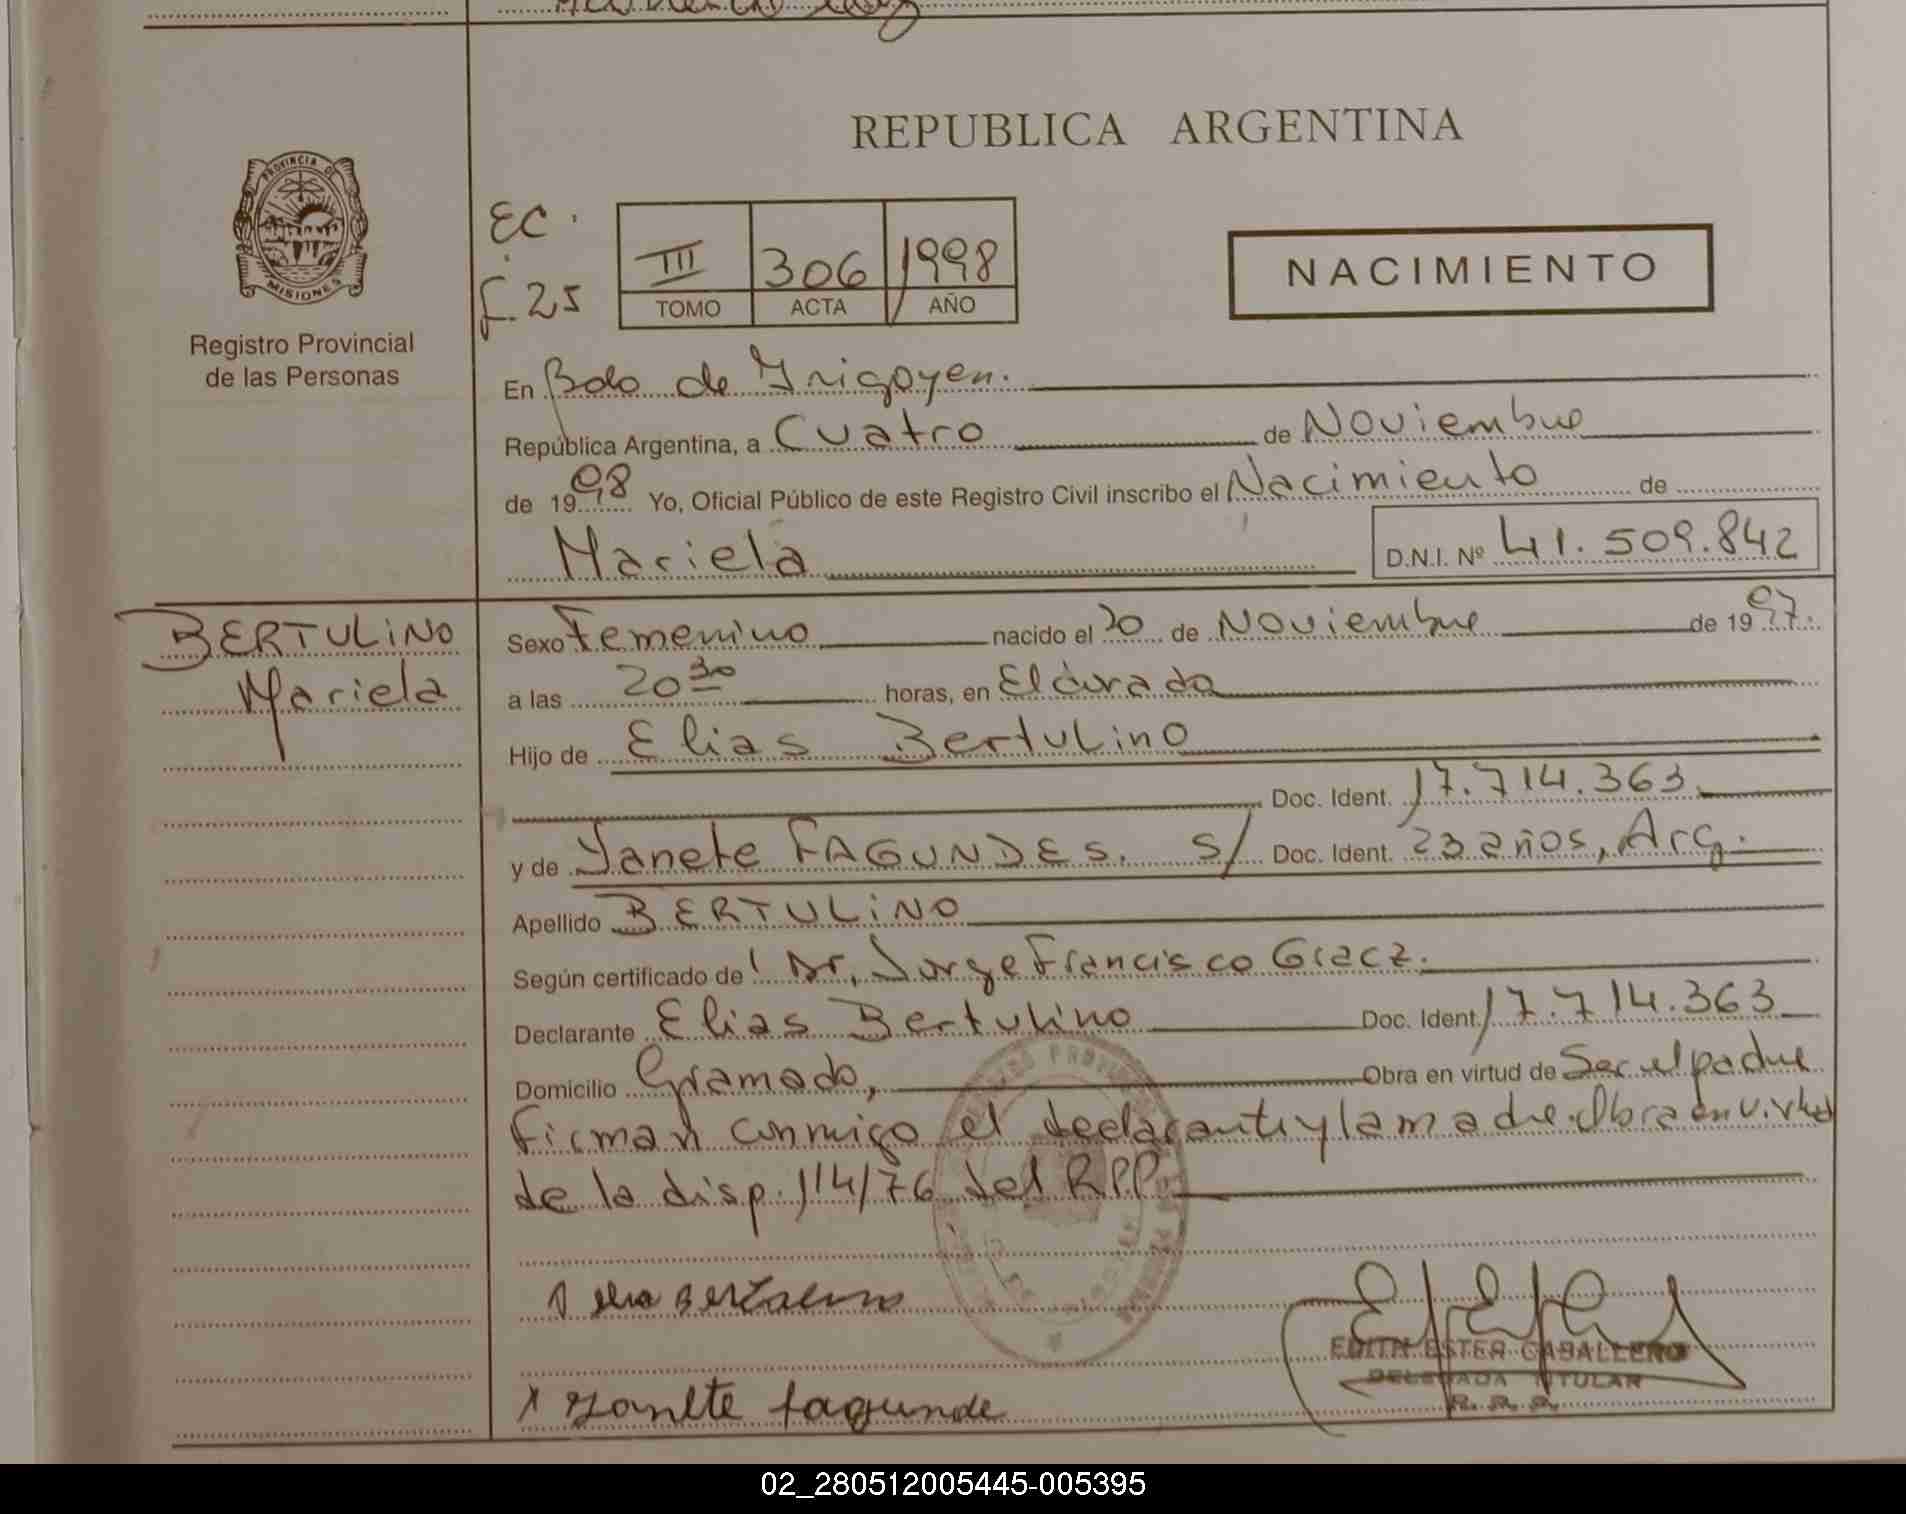 REPUBLICA ARGENTINA
PROVINCIA DE
MISIONES
Registro Provincial
de las Personas
EC.
F. 25
III 306 1998
TOMO ACTA AÑO
NACIMIENTO
En Bdo de Irigoyen.
República Argentina, a Cuatro de Noviembre
de 1998 Yo, Oficial Público de este Registro Civil inscribo el Nacimiento de
Mariela D.N.I. Nº 41.509.842
BERTULINO
Mariela
Sexo Femenino nacido el 20 de Noviembre de 1997.
a las 20 30 horas, en Eldorado
Hijo de Elias Bertulino
Doc. Ident. 17.714.363
y de Yanete FAGUNDES. S/ Doc. Ident. 23 años, Arg.
Apellido BERTULINO
Según certificado de Dr. Jorge Francisco Gracz.
Declarante Elias Bertulino Doc. Ident. 17.714.363
Domicilio Gramado, Obra en virtud de Ser el padre
Firman conmigo el declarante y la madre. Obra en virtud
de la disp. 114/76 del RPP
Elia Bertulino
EDITH ESTER CABALLERO
DELEGADA TITULAR
R.P.P.
X Yanete fagunde
02_280512005445-005395